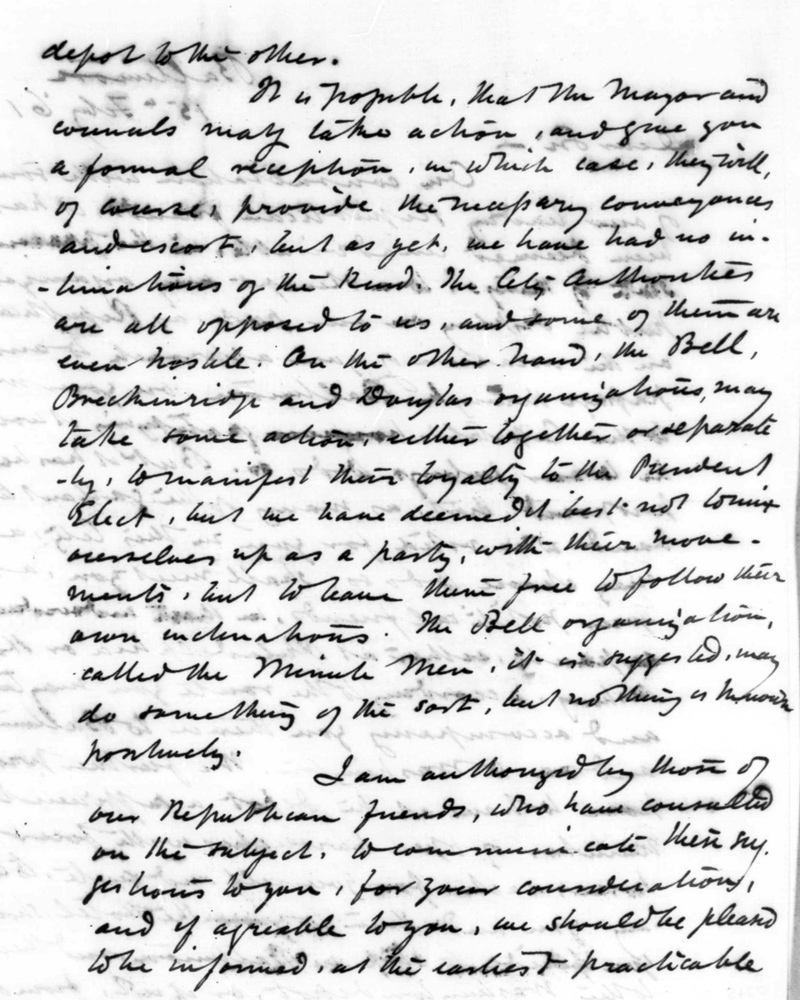 depot to the other.
It is possible, that the Mayor and
councils may take action, and give you
a formal reception, in which case, they will,
of course, provide the necessary conveyances
and escort, but as yet, we have had no in-
-timations of the kind. The City Authorities
are all opposed to us, and some of them are
even hostile. On the other hand, the Bell,
Breckinridge and Douglas organizations, may
take some action, either together or separate
-ly, to manifest their loyalty to the President
Elect, but we have deemed it best not to mix
ourselves up as a party, with their move-
ments, but to leave them free to follow their
own inclinations. The Bell organization,
called the Minute Men, it is suggested, may
do something of the sort, but nothing is known
positively.
I am authorized by those of
our Republican friends, who have consulted
on the subject, to communicate these sug-
gestions to you, for your consideration,
and if agreable to you, we should be pleased
to be informed, at the earliest practicable